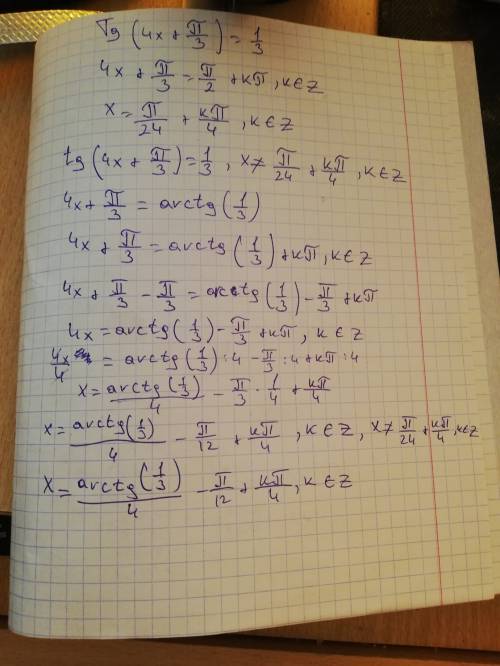 Tg (4x + π/3) = 1/3
4x + π/3 = π/2 + кπ, к∈Z
x = π/24 + кπ/4, к∈Z
tg (4x + π/3) = 1/3, x ≠ π/24 + кπ/4, к∈Z
4x + π/3 = arctg (1/3)
4x + π/3 = arctg (1/3) + кπ, к∈Z
4x + π/3 - π/3 = arctg (1/3) - π/3 + кπ
4x = arctg (1/3) - π/3 + кπ, к∈Z
4x/4 = arctg (1/3) : 4 - π/3 : 4 + кπ : 4
x = arctg (1/3)/4 - π/3 · 1/4 + кπ/4
x = arctg (1/3)/4 - π/12 + кπ/4, к∈Z, x ≠ π/24 + кπ/4, к∈Z
x = arctg (1/3)/4 - π/12 + кπ/4, к∈Z